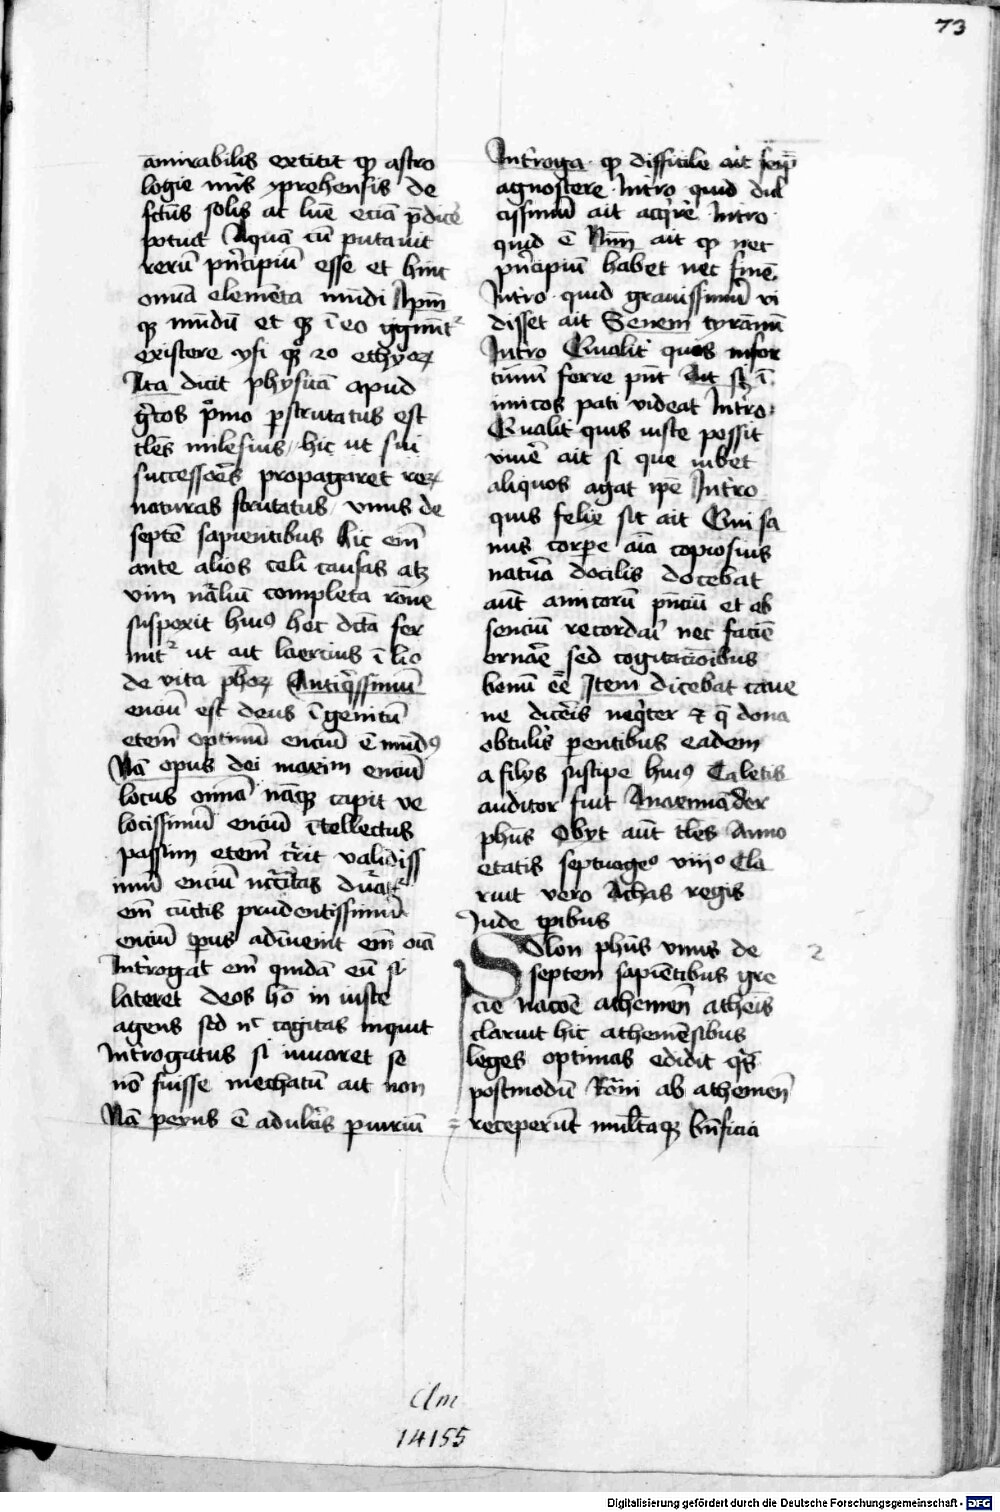 73
amirabilis extitit qp astro
logie nũis ɔprehensis de
fctũs solis ac lũe eciã p̄dicẽ
potuit Aquã cũ putauit
rerũ pñcipiũ esse et hinc
omĩa elemẽta mũdi Ipm̃
qꝫ mũdũ et qꝫ ĩ eo gignũt᷑
existere
Ita dicit physicã apud
g̃cos p̃mo pscrutatus est
tles̃ milesius / hic ut sui
successor̃s propagaret reꝝ
naturas scrutatus / vnus de
septẽ sapientibus hic em̃
ante alios celi causas atꝫ
vim nãliũ completa rõne
suspexit huiꝰ hec dc̃ta fer
unt᷑ ut ait laercius ĩ lio
de vita phõꝝ Antiq̃ssimũ
enciũ est deus ĩgenitũ
etem̃ optimũ enciũ ẽ mũdꝰ
Nã opus dei maxim enciũ
locus omĩa nãqꝫ capit ve
locissimũ enciũ ĩtellectus
passim etem̃ c̃rit validiss
imũ enciũ nc̃c̃itas
em̃ cũctis prudentissimũ
enciũ tp̃us adĩuenit em̃ oĩa
Int̃rogat em̃ quidã eũ si
lateret deos hõ in iuste
agens sed nc̃ cogitas inquit
Int̃rogatus si iuuaret se
nõ fuisse mechatũ ait non
Nã peyus ẽ adult̃is piuriũ
Int̃roga · qp difficile ait seip̃
agnoscere · Int̃ro quid dul
cissimũ ait acq̃re Int̃ro
quid ẽ Nim̃ ait qp nec
pñcipiũ habet nec finẽ.
Int̃ro · quid grauissimũ vi
disset ait Senem tyrãnũ
Int̃ro Qualit̃ quis infor
tuniũ ferre pñt Ait si ĩ
imicos pati videat Int̃ro:
Qualit̃ quis iuste possit
viuẽ ait si que iubet
aliquos agat ipẽ Int̃ro
quis felix sit ait Qui sa
nus corpe aĩa copiosius
natũa docilis docebat
aũt amicorũ pñciũ et ab
senciũ recordai᷑ nec faciẽ
ornãe sed cogitacõibus
bonũ eẽ Item dicebat caue
ne dicẽis neq̃ter ⁊ q̃ dona
obtulĩs pentibus eadem
a filijs suscipe huiꝰ Caletis
auditor fuit Anaxmãder
phũs Obyt aũt tles̃ Anno
etatis septuageᵒ viiiᵒ Cla
ruit vero Achas regis
Jude tp̃ibus
Solon phũs vnus de 2
septem sapiẽtibus gre
cie nacõe atheniẽñ atheĩs
claruit hic atheniẽsibus
leges optimas edidit q̃s
postmodũ Rõni ab atheniẽñ
receperũt mult̃aqꝫ bñficia
Clm
14155
Digitalisierung gefördert durch die Deutsche Forschungsgemeinschaft - DFG